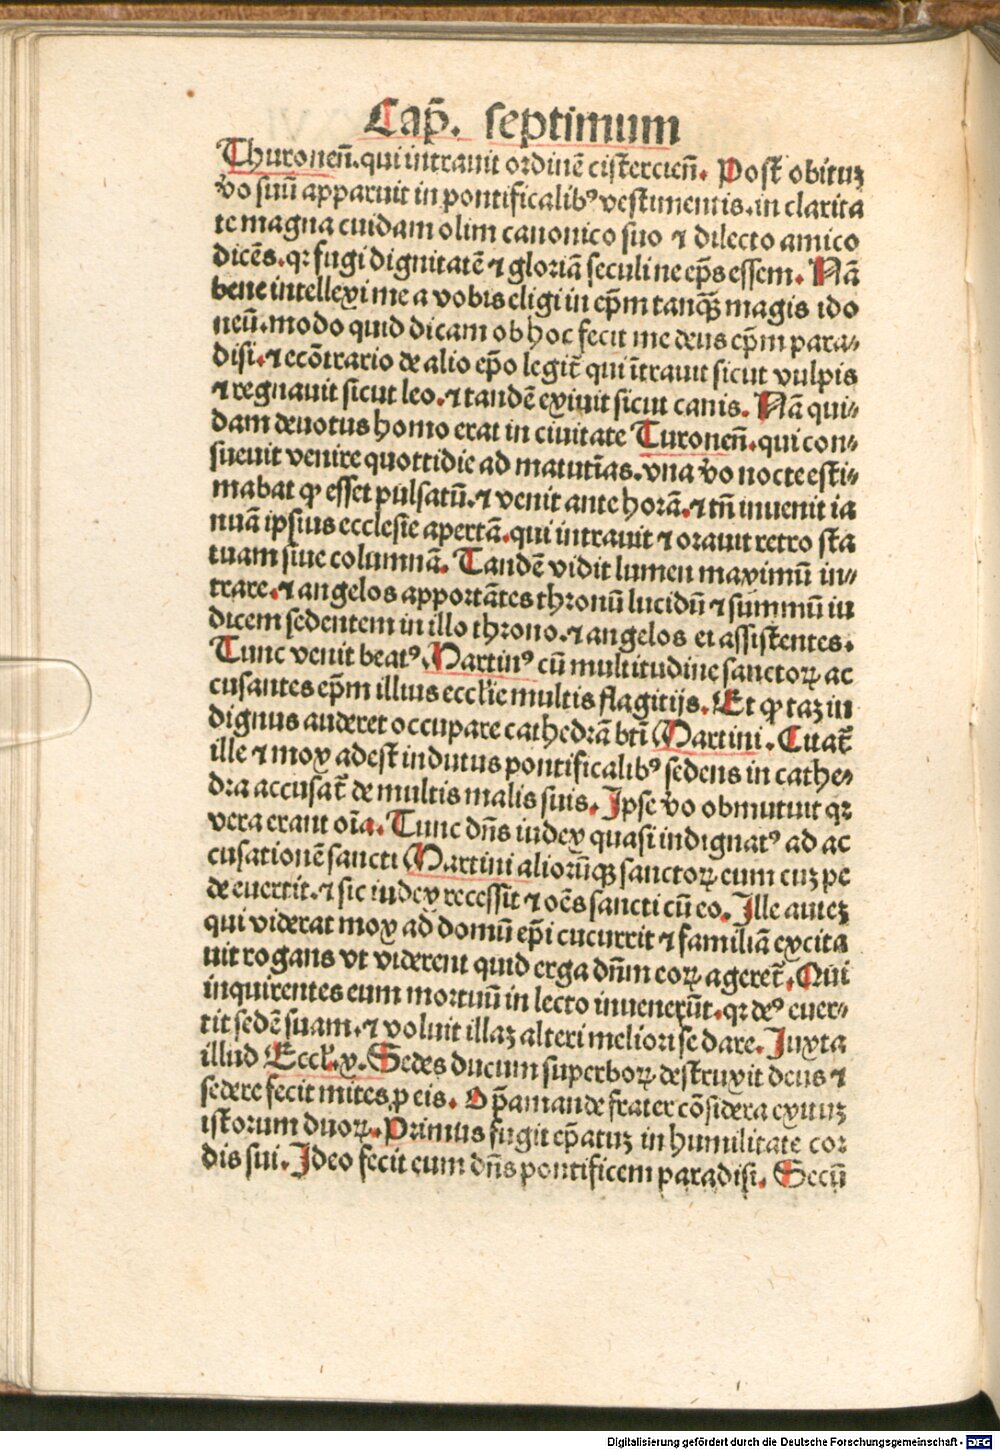 Cap̃. septimum
Thuronen̄. qui intrauit ordinē cistercien̄. Post obituꝫ
v̄o suū apparuit in pontificalibꝰ vestimentis. in clarita
te magna cuidam olim canonico suo ⁊ dilecto amico
dicēs. qꝛ fugi dignitatē ⁊ gloriā seculi ne ep̄s essem. Nā
bene intellexi me a vobis eligi in ep̄m tanqꝫ magis ido
neū. modo quid dicam ob hoc fecit me deus ep̄m para⸗
disi. ⁊ ecōtrario de alio ep̄o legit̄ qui ītrauit sicut vulpis
⁊ regnauit sicut leo. ⁊ tandē exiuit sicut canis. Nā qui⸗
dam deuotus homo erat in ciuitate Turonen̄. qui con⸗
sueuit venire quottidie ad matutīas. vna v̄o nocte esti⸗
mabat ꝙ esset pulsatū. ⁊ venit ante horā. ⁊ tn̄ inuenit ia
nuā ipsius ecclesie apertā. qui intrauit ⁊ orauit retro sta
tuam siue columnā. Tandē vidit lumen maximū in⸗
trare. ⁊ angelos apportātes thronū lucidū ⁊ summū iu
dicem sedentem in illo throno. ⁊ angelos ei assistentes.
Tunc venit beatꝰ Martinꝰ cū multitudine sanctoꝝ ac
cusantes ep̄m illius eccl̄ie multis flagitijs. Et ꝙ taꝫ in
dignus auderet occupare cathedrā bt̄i Martini. Citat̄
ille ⁊ mox adest indutus pontificalibꝰ sedens in cathe⸗
dra accusat̄ de multis malis suis. Ipse v̄o obmutuit qꝛ
vera erant oīa. Tunc dn̄s iudex quasi indignatꝰ ad ac
cusationē sancti Martini aliorūqꝫ sanctoꝝ eum cuꝫ pe
de euertit. ⁊ sic iudex recessit ⁊ oēs sancti cū eo. Ille auteꝫ
qui viderat mox ad domū ep̄i cucurrit ⁊ familiā excita
uit rogans vt viderent quid erga dn̄m eoꝝ ageret̄. Qui
inquirentes eum mortuū in lecto inuenerūt. qꝛ deꝰ euer⸗
tit sedē suam. ⁊ voluit illaꝫ alteri meliori se dare. Iuxta
illud Eccl̄. x. Sedes ducum superboꝝ destruxit deus ⁊
sedere fecit mites ꝓ eis. O p̄amande frater cōsidera exituꝫ
istorum duoꝝ. Primus fugit ep̄atuꝫ in humilitate cor
dis sui. Ideo fecit eum dn̄s pontificem paradisi. Secū
Digitalisierung gefördert durch die Deutsche Forschungsgemeinschaft - DFG